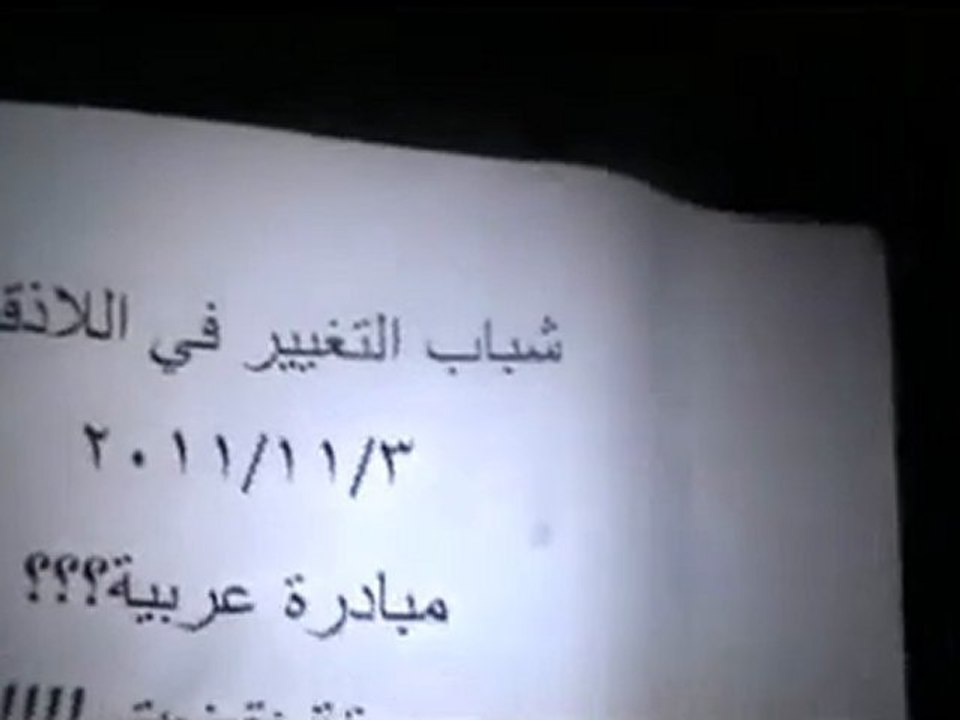 شباب التغيير في اللاذق
٢٠١١/١١/٣
مبادرة عربية؟؟؟
!!!!